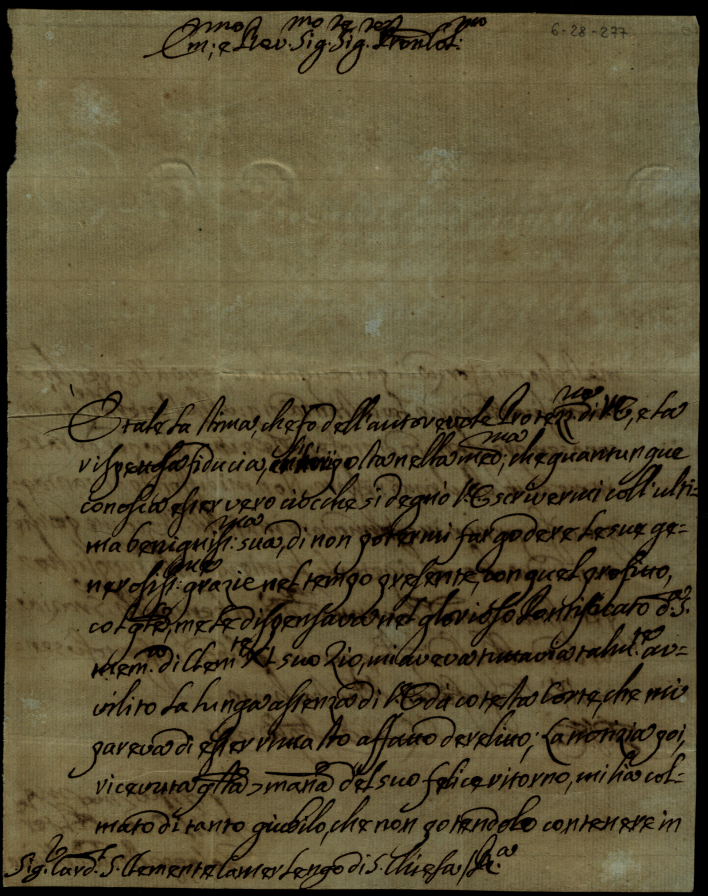 Em:mo e Rev:mo Sig: Sig: Pron Col:mo
6-28-277
È tale la stima, che fò dell'autorevole Protez:ne di V.E., e la
rispettosa fiducia, riposta nella med:ma, che quantunque
conosca esser vero ciocche si degnò V.E. scrivermi coll'ulti=
ma benigniss:ma sua, di non potermi far godere le sue ge=
nerosiss:me grazie nel tempo presente, con quel profluvio,
col qle, me le dispensava nel glorioso Pontificato d. S.
mem:a di Clem:te XI suo Zio, mi aveva tuttavia talm:te av=
vilito la lunga assenza di V.E. da cotesta Corte, che mi
pareva di esser rimasto affatto derelitto; La notizia poi,
ricevuta qsta mana del suo felice ritorno, mi hà col=
mato di tanto giubilo, che non potendolo contenere in
Sig:r Card:l S. Clemente Camerlengo di S. Chiesa